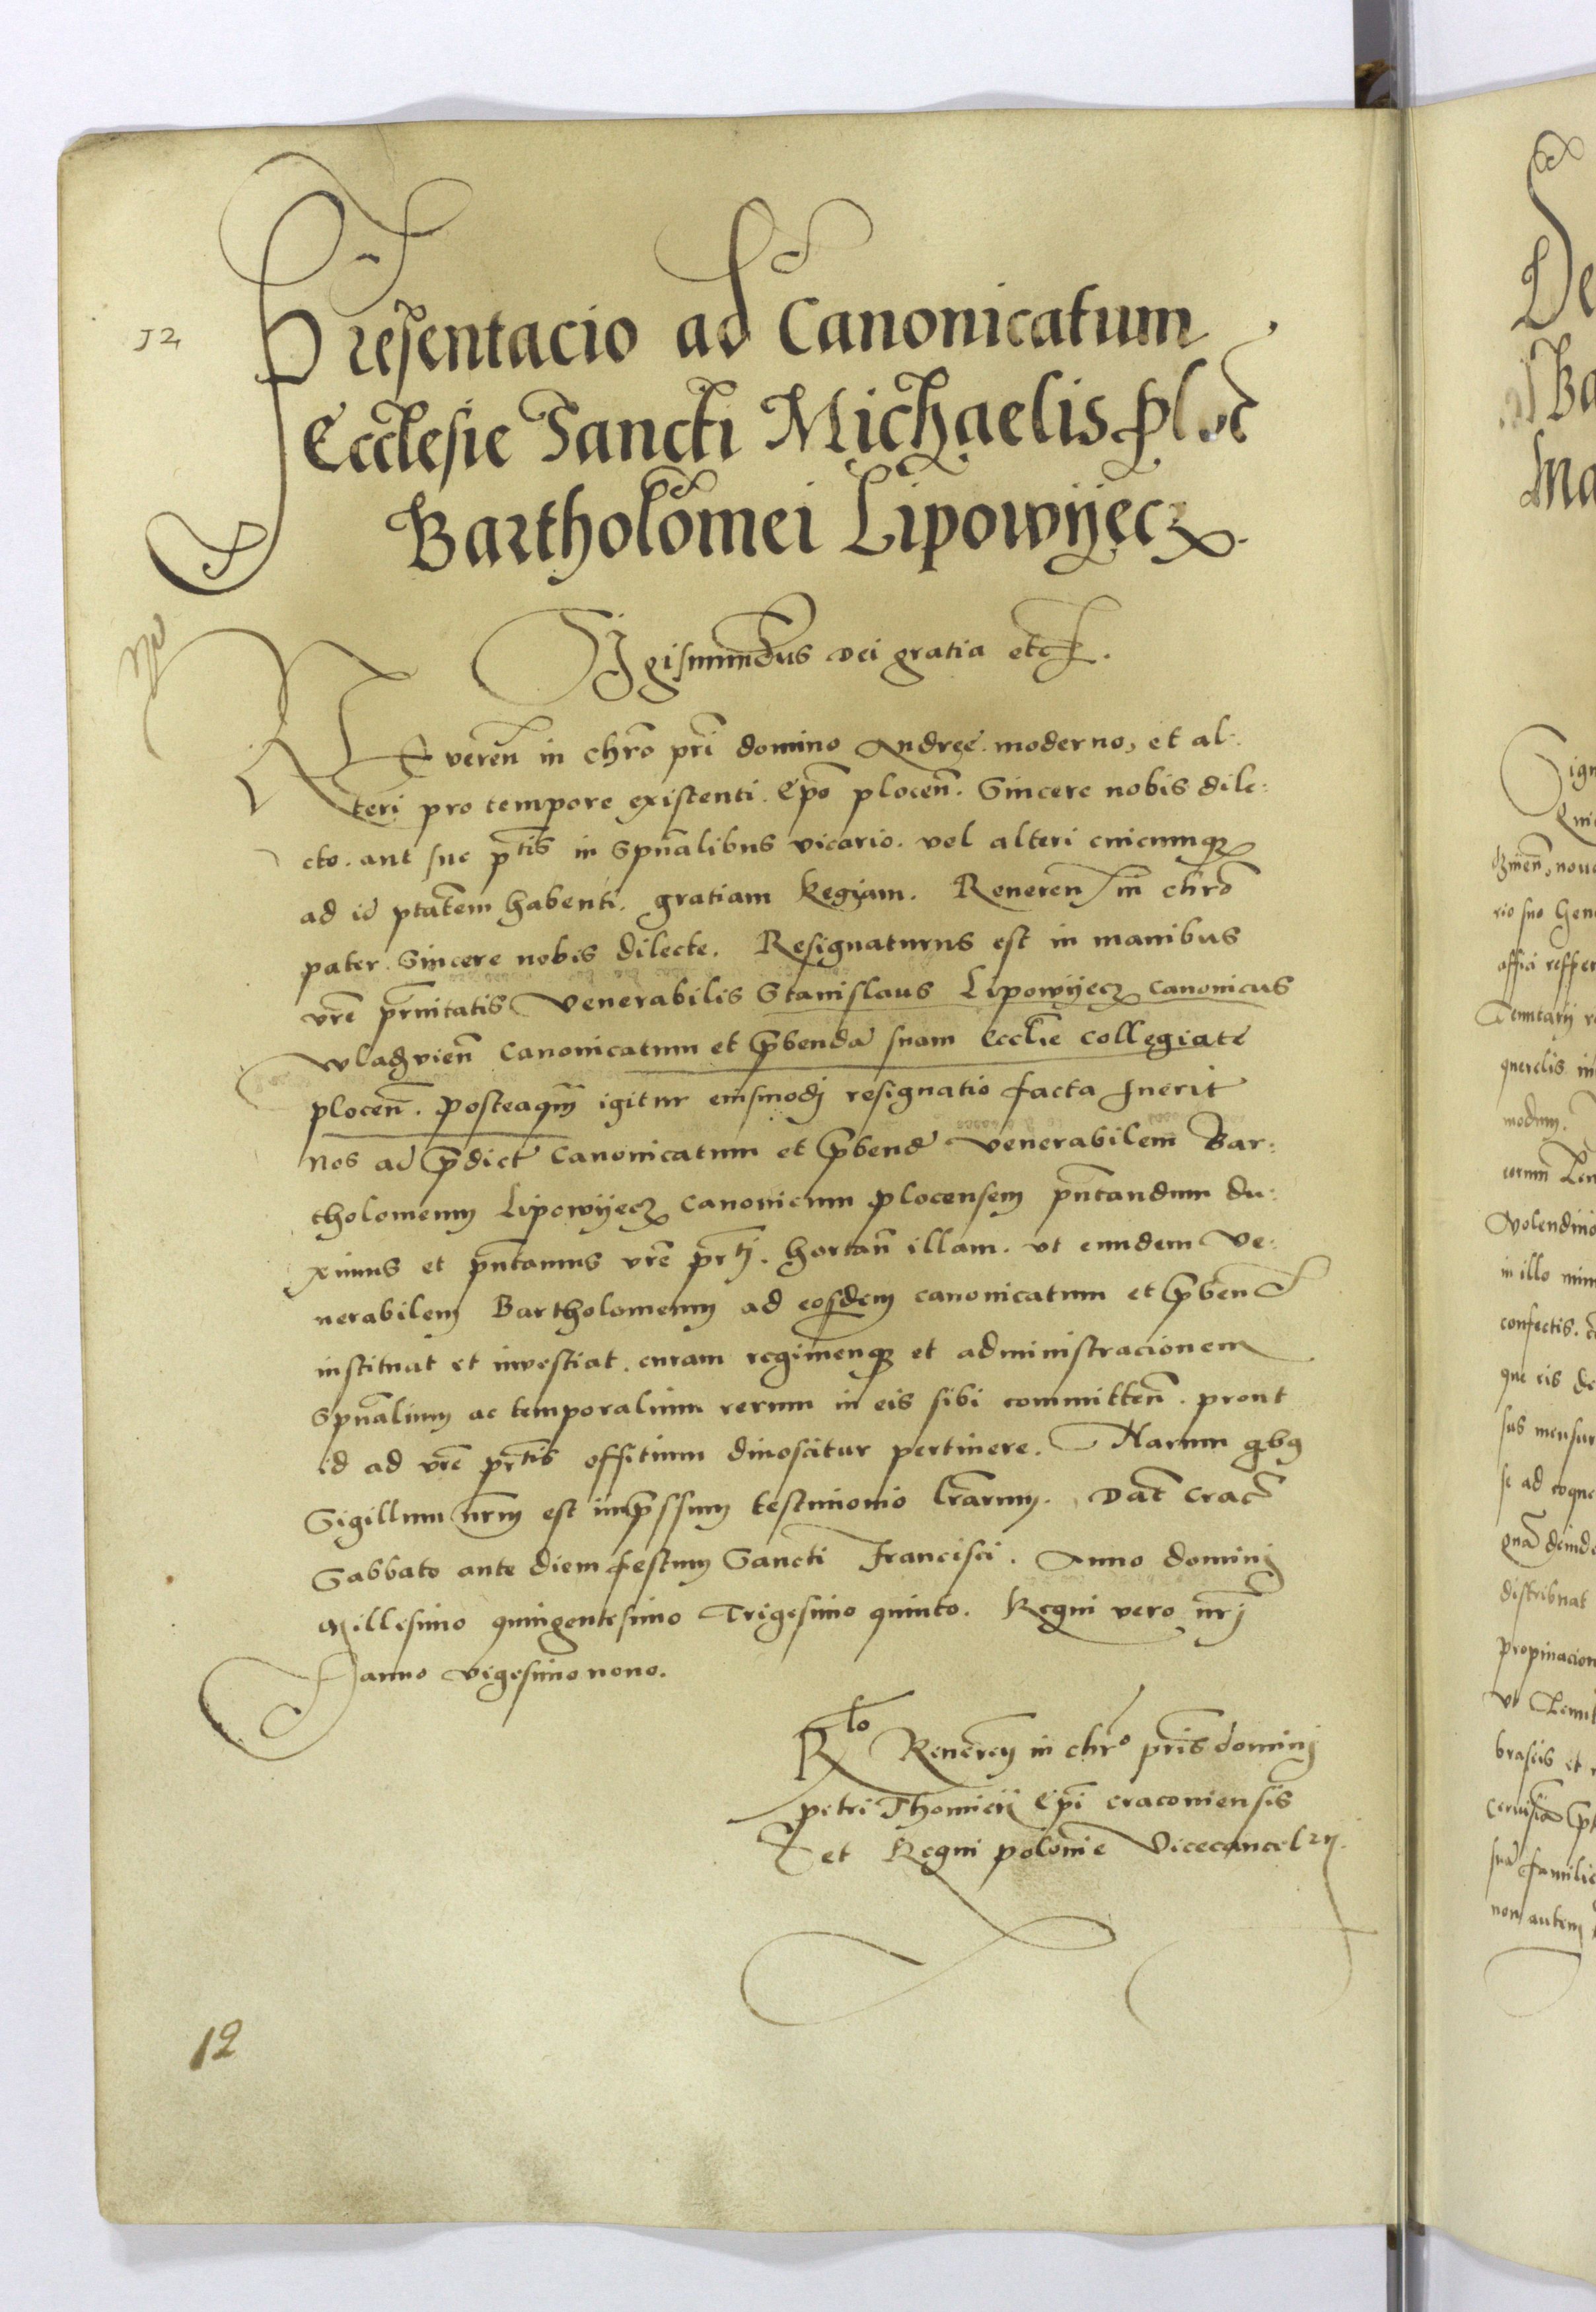 12
Presentacio ad Canonicatum
Ecclesie Sancti Michaelis Ploc
Bartholomei Lipowyecz.
Sigismundus dei gratia etc.
Reveren in chro pri domino Andree. moderno, et al:
teri pro tempore existenti. Epo plocen. Sincere nobis dile:
cto. aut sue ptis in spualibus vicario. vel alteri cuicumq
ad id ptatem habenti. gratiam Regiam. Reveren in chro
pater. Sincere nobis dilecte. Resignaturus est in manibus
vre prnitatis Venerabilis Stanislaus Lipowyecz canonicus
wladzvien Canonicatum et pbenda suam Ecclie collegiate
plocen. Posteaqm igitur eiusmodi resignatio facta fuerit
Nos ad pdict Canonicatum et pbend venerabilem Bar:
tholomeum Lipowyecz Canonicum plocensem pntandum du:
ximus et pntamus vre prti. hortan illam. ut eundem Ve:
nerabilem Bartholomeum ad eosdem canonicatum et pbend
instituat et investiat. curam regimenq et administracionem
spualium ac temporalium rerum in eis sibi committen. prout
id ad vre prtis offitium dinoscitur pertinere. Harum qbg
Sigillum nrm est impssum testimonio lrarum. Dat Crac
Sabbato ante diem festum Sancti Francisci. Anno domini
Millesimo quingentesimo Trigesimo quinto. Regni vero nri
anno vigesimo nono.
Rlo Reveren in chro pris domini
petri Thomicii Epi cracoviensis
et Regni polonie Vicecancelrii.
12